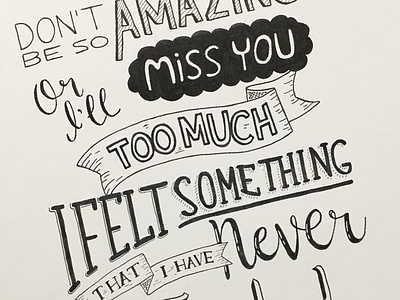 DON'T
BE SO
AMAZING
Or
I'll
MISS YOU
TOO MUCH
I FELT SOMETHING
THAT I HAVE
Never